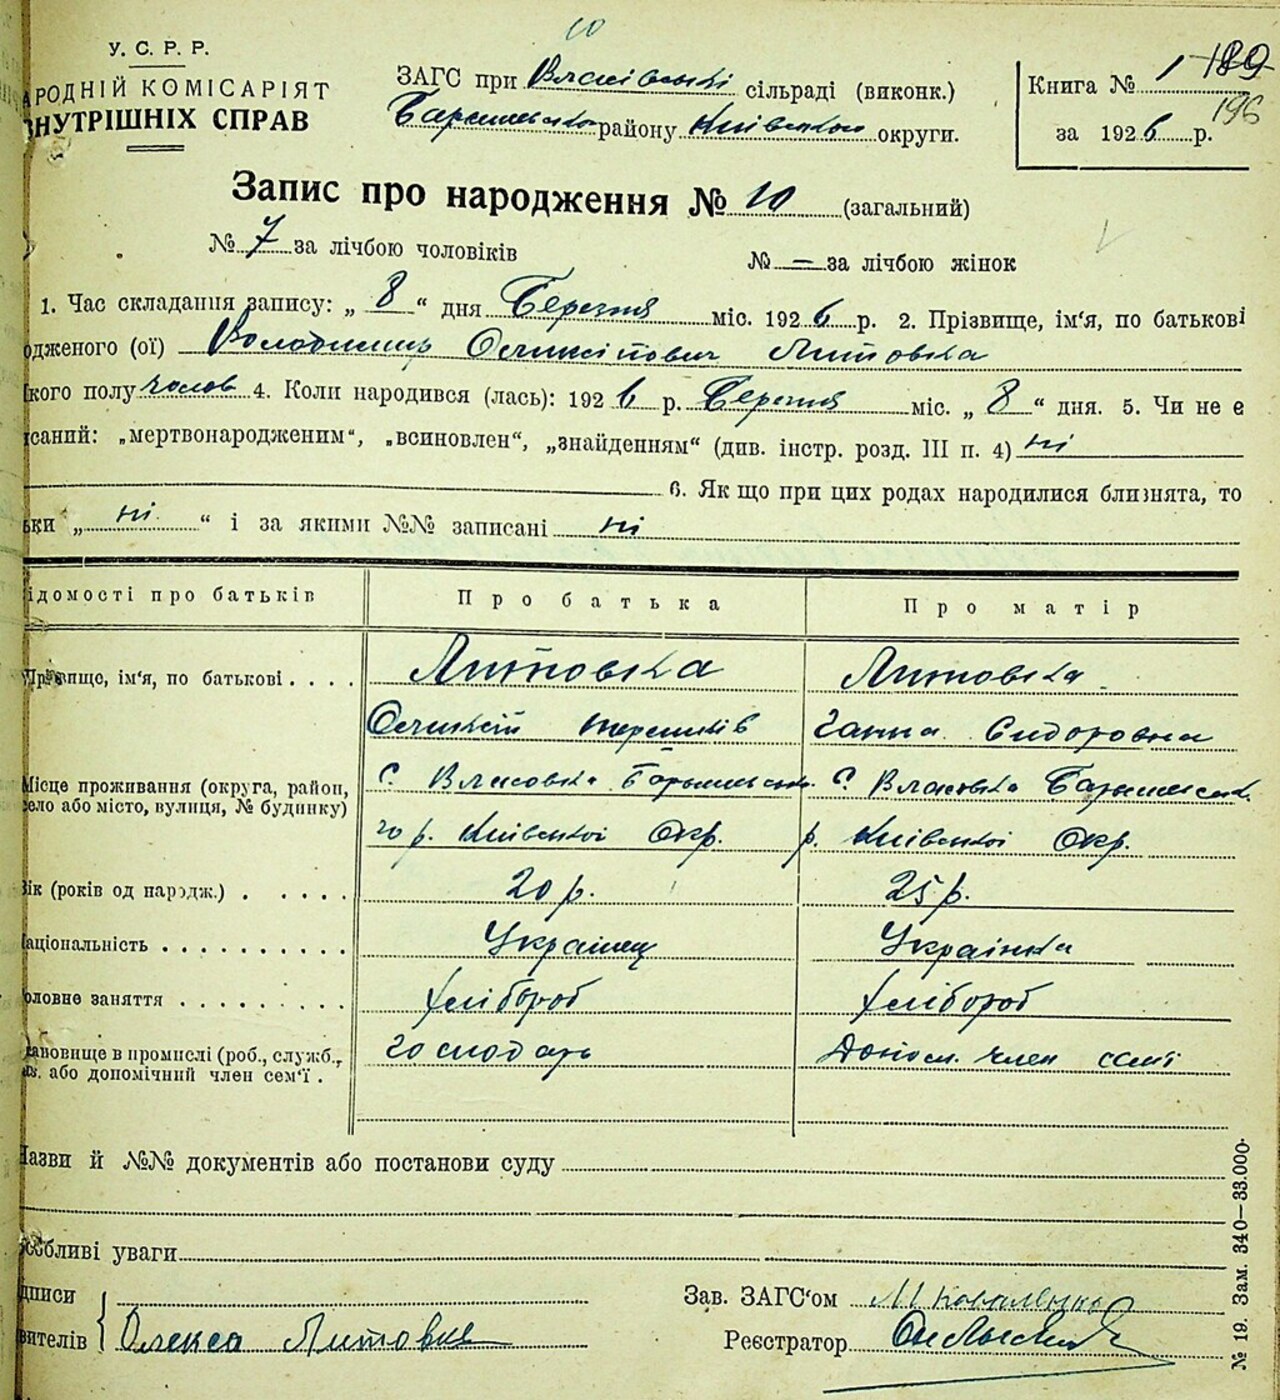 10
У. С. Р. Р.
РОДНІЙ КОМІСАРІЯТ
НУТРІШНІХ СПРАВ
ЗАГС при Власівській сільраді (виконк.)
району Київської округи.
Книга № 1 189
196
за 1926 р.
Запис про народження № 10 (загальний)
№ 7 за лічбою чоловіків
№ — за лічбою жінок
1. Час складання запису: „ 8 “ дня Березня міс. 1926 р. 2. Прізвище, ім'я, по батькові
одженого (ої) Володимир Литовка
кого полу чолов 4. Коли народився (лась): 1926 р. Березня міс. „ 8 “ дня. 5. Чи не є
саний: „мертвонародженим“, „всиновлен“, „знайденням“ (див. інстр. розд. III п. 4) ні
6. Як що при цих родах народилися близнята, то
ки „ ні “ і за якими №№ записані ні
ідомості про батьків
Про батька
Про матір
Прізвище, ім'я, по батькові . . . .
Литовка
Литовка
Ганна Сидоровна
Місце проживання (округа, район,
село або місто, вулиця, № будинку)
С. Власовка
С. Власовка
го р. Київської Окр.
р. Київської Окр.
ік (років од народж.) . . . . .
20 р.
25 р.
аціональність . . . . . . . . . .
Українец
Українка
оловне заняття . . . . . . . . .
Хлібороб
Хлібороб
тановище в промислі (роб., служб.,
або допомічний член сем'ї .
Господарь
Допом. член семї
Назви й №№ документів або постанови суду
собливі уваги
дписи
вителів
Олекса Литовка
Зав. ЗАГС'ом М Коваленко
Реєстратор
№ 19. Зам. 340—33.000.